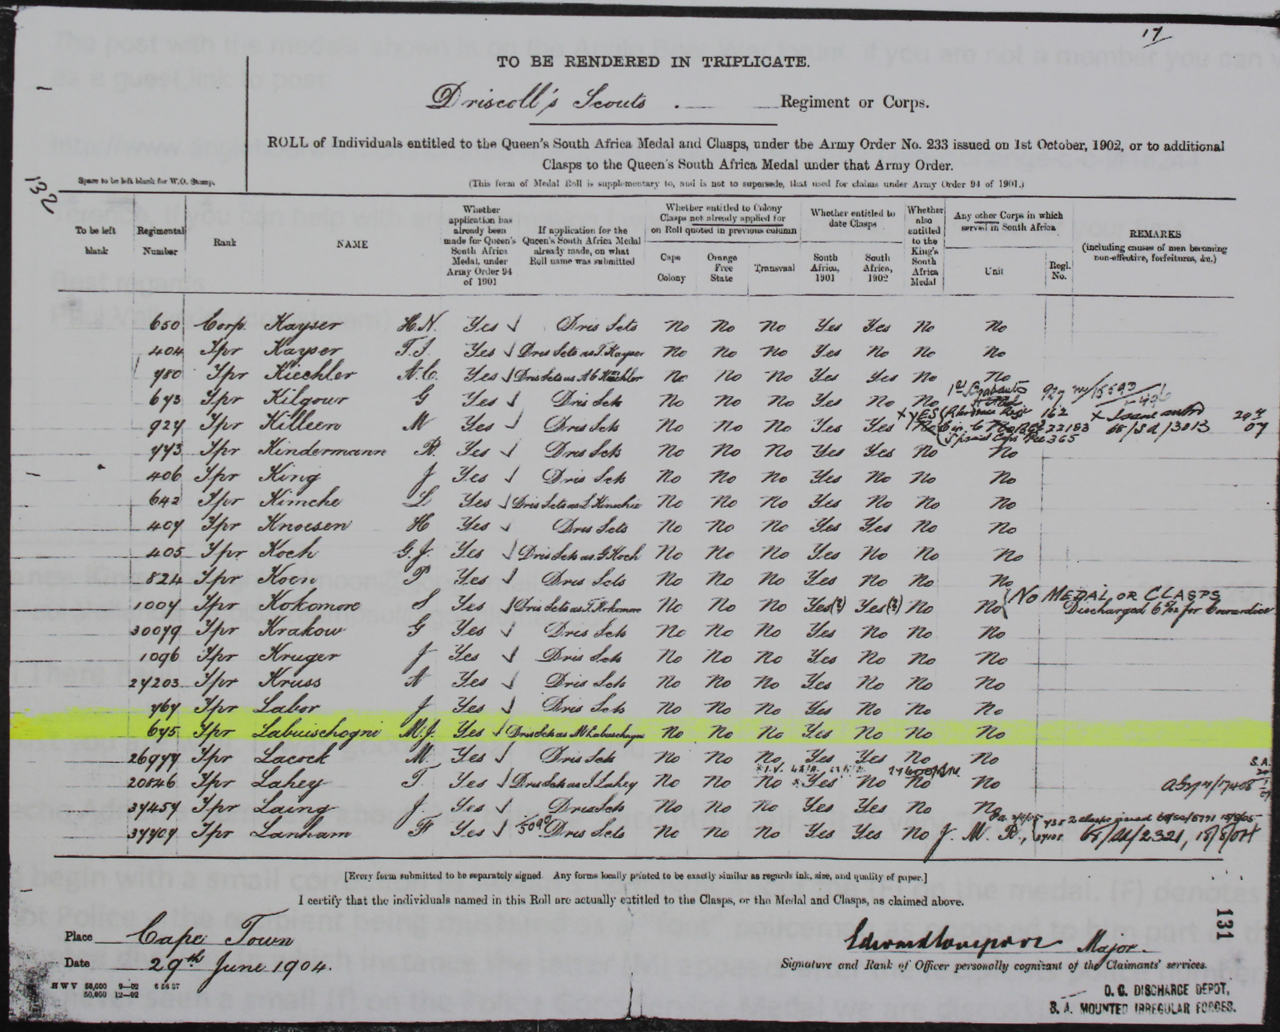 17
TO BE RENDERED IN TRIPLICATE.
Driscoll's Scouts Regiment or Corps.
ROLL of Individuals entitled to the Queen's South Africa Medal and Clasps, under the Army Order No. 233 issued on 1st October, 1902, or to additional
Clasps to the Queen's South Africa Medal under that Army Order.
(This form of Medal Roll is supplementary to, and is not to supersede, that used for claims under Army Order 94 of 1901.)
Space to be left blank for W.O. Stamp.
132
To be left blank
Regimental Number
Rank
NAME
Whether application has already been made for Queen's South Africa Medal, under Army Order 94 of 1901
If application for the Queen's South Africa Medal already made, on what Roll name was submitted
Whether entitled to Colony Clasps not already applied for on Roll quoted in previous column
Cape Colony
Orange Free State
Transvaal
Whether entitled to date Clasps
South Africa, 1901
South Africa, 1902
Whether also entitled to the King's South Africa Medal
Any other Corps in which served in South Africa
Unit
Regl. No.
REMARKS
(including causes of men becoming non-effective, forfeitures, &c.)
650 Corp Kayser H.N. Yes Dris Scts No No No Yes Yes No No
404 Tpr Kayser T.J. Yes Dris Scts as T. Kayser No No No Yes No No No
980 Tpr Kiechler A.C. Yes Dris Scts as A C Kiechler No No No Yes Yes No No
673 Tpr Kilgour G Yes Dris Scts No No No Yes No No
927 Tpr Killeen M Yes Dris Scts No No No Yes Yes YES 162 22183 365 68/SA/3013
773 Tpr Kindermann R Yes Dris Scts No No No Yes Yes No No
406 Tpr King J Yes Dris Scts No No No Yes No No No
642 Tpr Kinche L Yes Dris Scts as L Kinchie No No No Yes No No No
407 Tpr Knoesen H Yes Dris Scts No No No Yes Yes No No
405 Tpr Koch G.J. Yes Dris Scts as G Koch No No No Yes No No No
824 Tpr Koen P Yes Dris Scts No No No Yes No No No
1007 Tpr Kokomore S Yes Dris Scts as T. Kokomore No No No Yes(?) Yes(?) No No NO MEDAL OR CLASPS
Discharged for Cowardice
30079 Tpr Krakow G Yes Dris Scts No No No Yes No No No
1096 Tpr Kruger J Yes Dris Scts No No No Yes No No No
27203 Tpr Kruss N Yes Dris Scts No No No Yes No No No
767 Tpr Labor J Yes Dris Scts No No No Yes No No No
675 Tpr Labuischogne M.J. Yes Dris Scts as M Labuschagne No No No Yes No No No
26977 Tpr Lacock M Yes Dris Scts No No No Yes Yes No No
20846 Tpr Lahey T Yes Dris Scts as J Lahey No No No Yes No No No
37457 Tpr Laing J Yes Dris Scts No No No Yes Yes No No
37707 Tpr Lanham F Yes Dris Scts No No No Yes Yes No J. M. R. 68/SA/2321, 15/8/04
[Every form submitted to be separately signed. Any forms locally printed to be exactly similar as regards ink, size, and quality of paper.]
I certify that the individuals named in this Roll are actually entitled to the Clasps, or the Medal and Clasps, as claimed above.
Place Cape Town
Date 29th June 1904.
Major
Signature and Rank of Officer personally cognizant of the Claimants' services.
131
O. C. DISCHARGE DEPOT,
S. A. MOUNTED IRREGULAR FORCES.
H W V 50,000 9-02
50,000 12-02